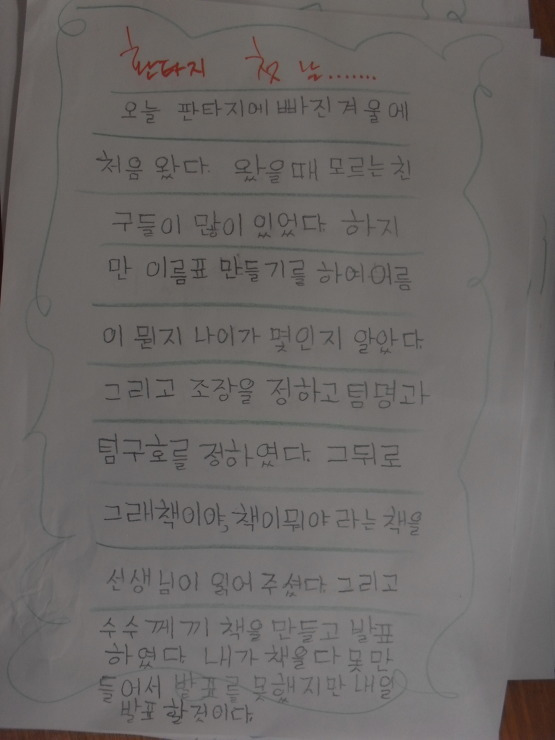 환타지 첫 날.......
오늘 판타지에 빠진 겨울에
처음 왔다. 왔을때 모르는 친
구들이 많이 있었다. 하지
만 이름표 만들기를 하여 이름
이 뭔지 나이가 몇인지 알았다.
그리고 조장을 정하고 팀명과
팀구호를 정하였다. 그뒤로
그래책이야, 책이뭐야 라는 책을
선생님이 읽어 주셨다. 그리고
수수께끼 책을 만들고 발표
하였다. 내가 책을 다 못만
들어서 발표를 못했지만 내일
발표 할것이다.